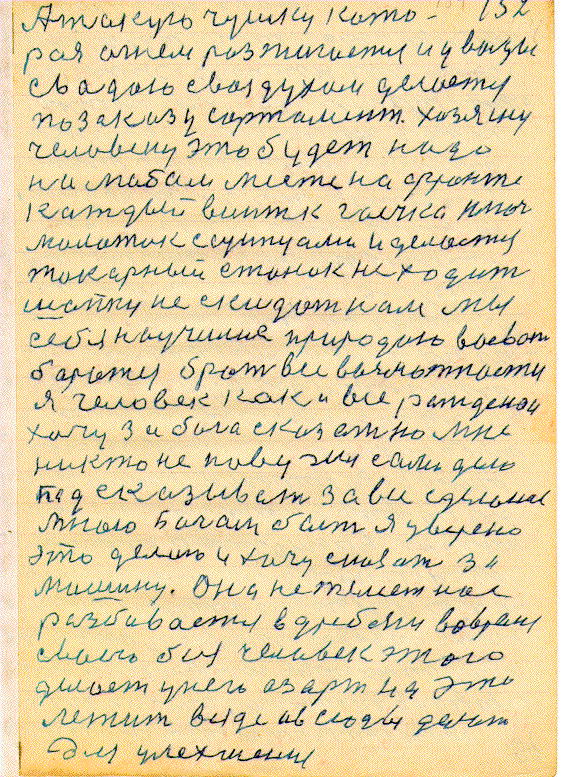 А такую чушку кото- 132
рая огнем разжигается и у воды
сва дою своз духом делается
по заказу сортамент. хозяину
человеку это будет надо
на любам месте на фронте
каждый винтик гаечка ключ
молоток с щипцами и делается
токарный станок не ходит
шапку не скидает нам мы
себя научились природою воеват
барется брат все важности
я человек как и все рожденой
хочу за бога сказат но мне
никто не
под сказывает за все сделоное
мною Богам бает я уверено
это делаю и хочу сказат за
машину. Она не желает нас
разбивается в дребезги вовремя
своего боя человек этого
делает у него азарт на это
летит везде
для улехшения